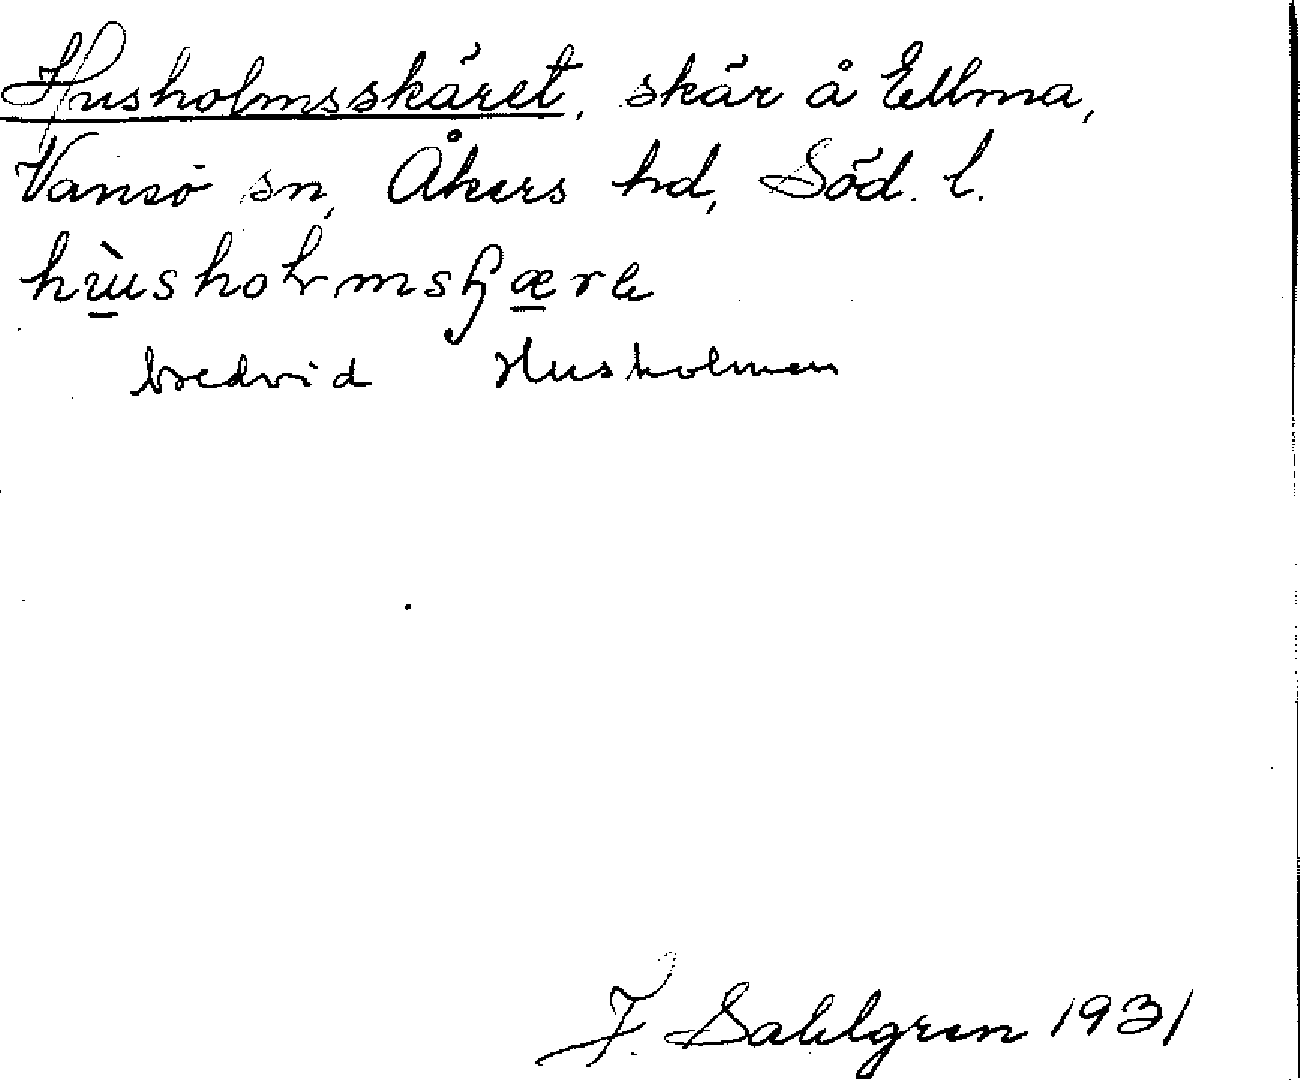 Husholmsskäret, skär å Ellma,
Vansö sn, Åkers hd, Söd. l.
bredvid Husholmen
J. Sahlgren 1931